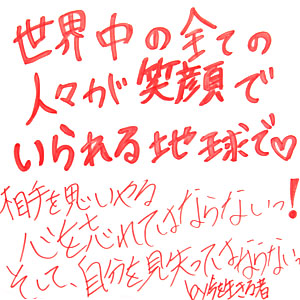 世界中の全ての
人々が笑顔で
いられる地球で♡
相手を思いやる
心を忘れてはならないっ!
そして、自分を見失ってはならないっ
by今を生きる者